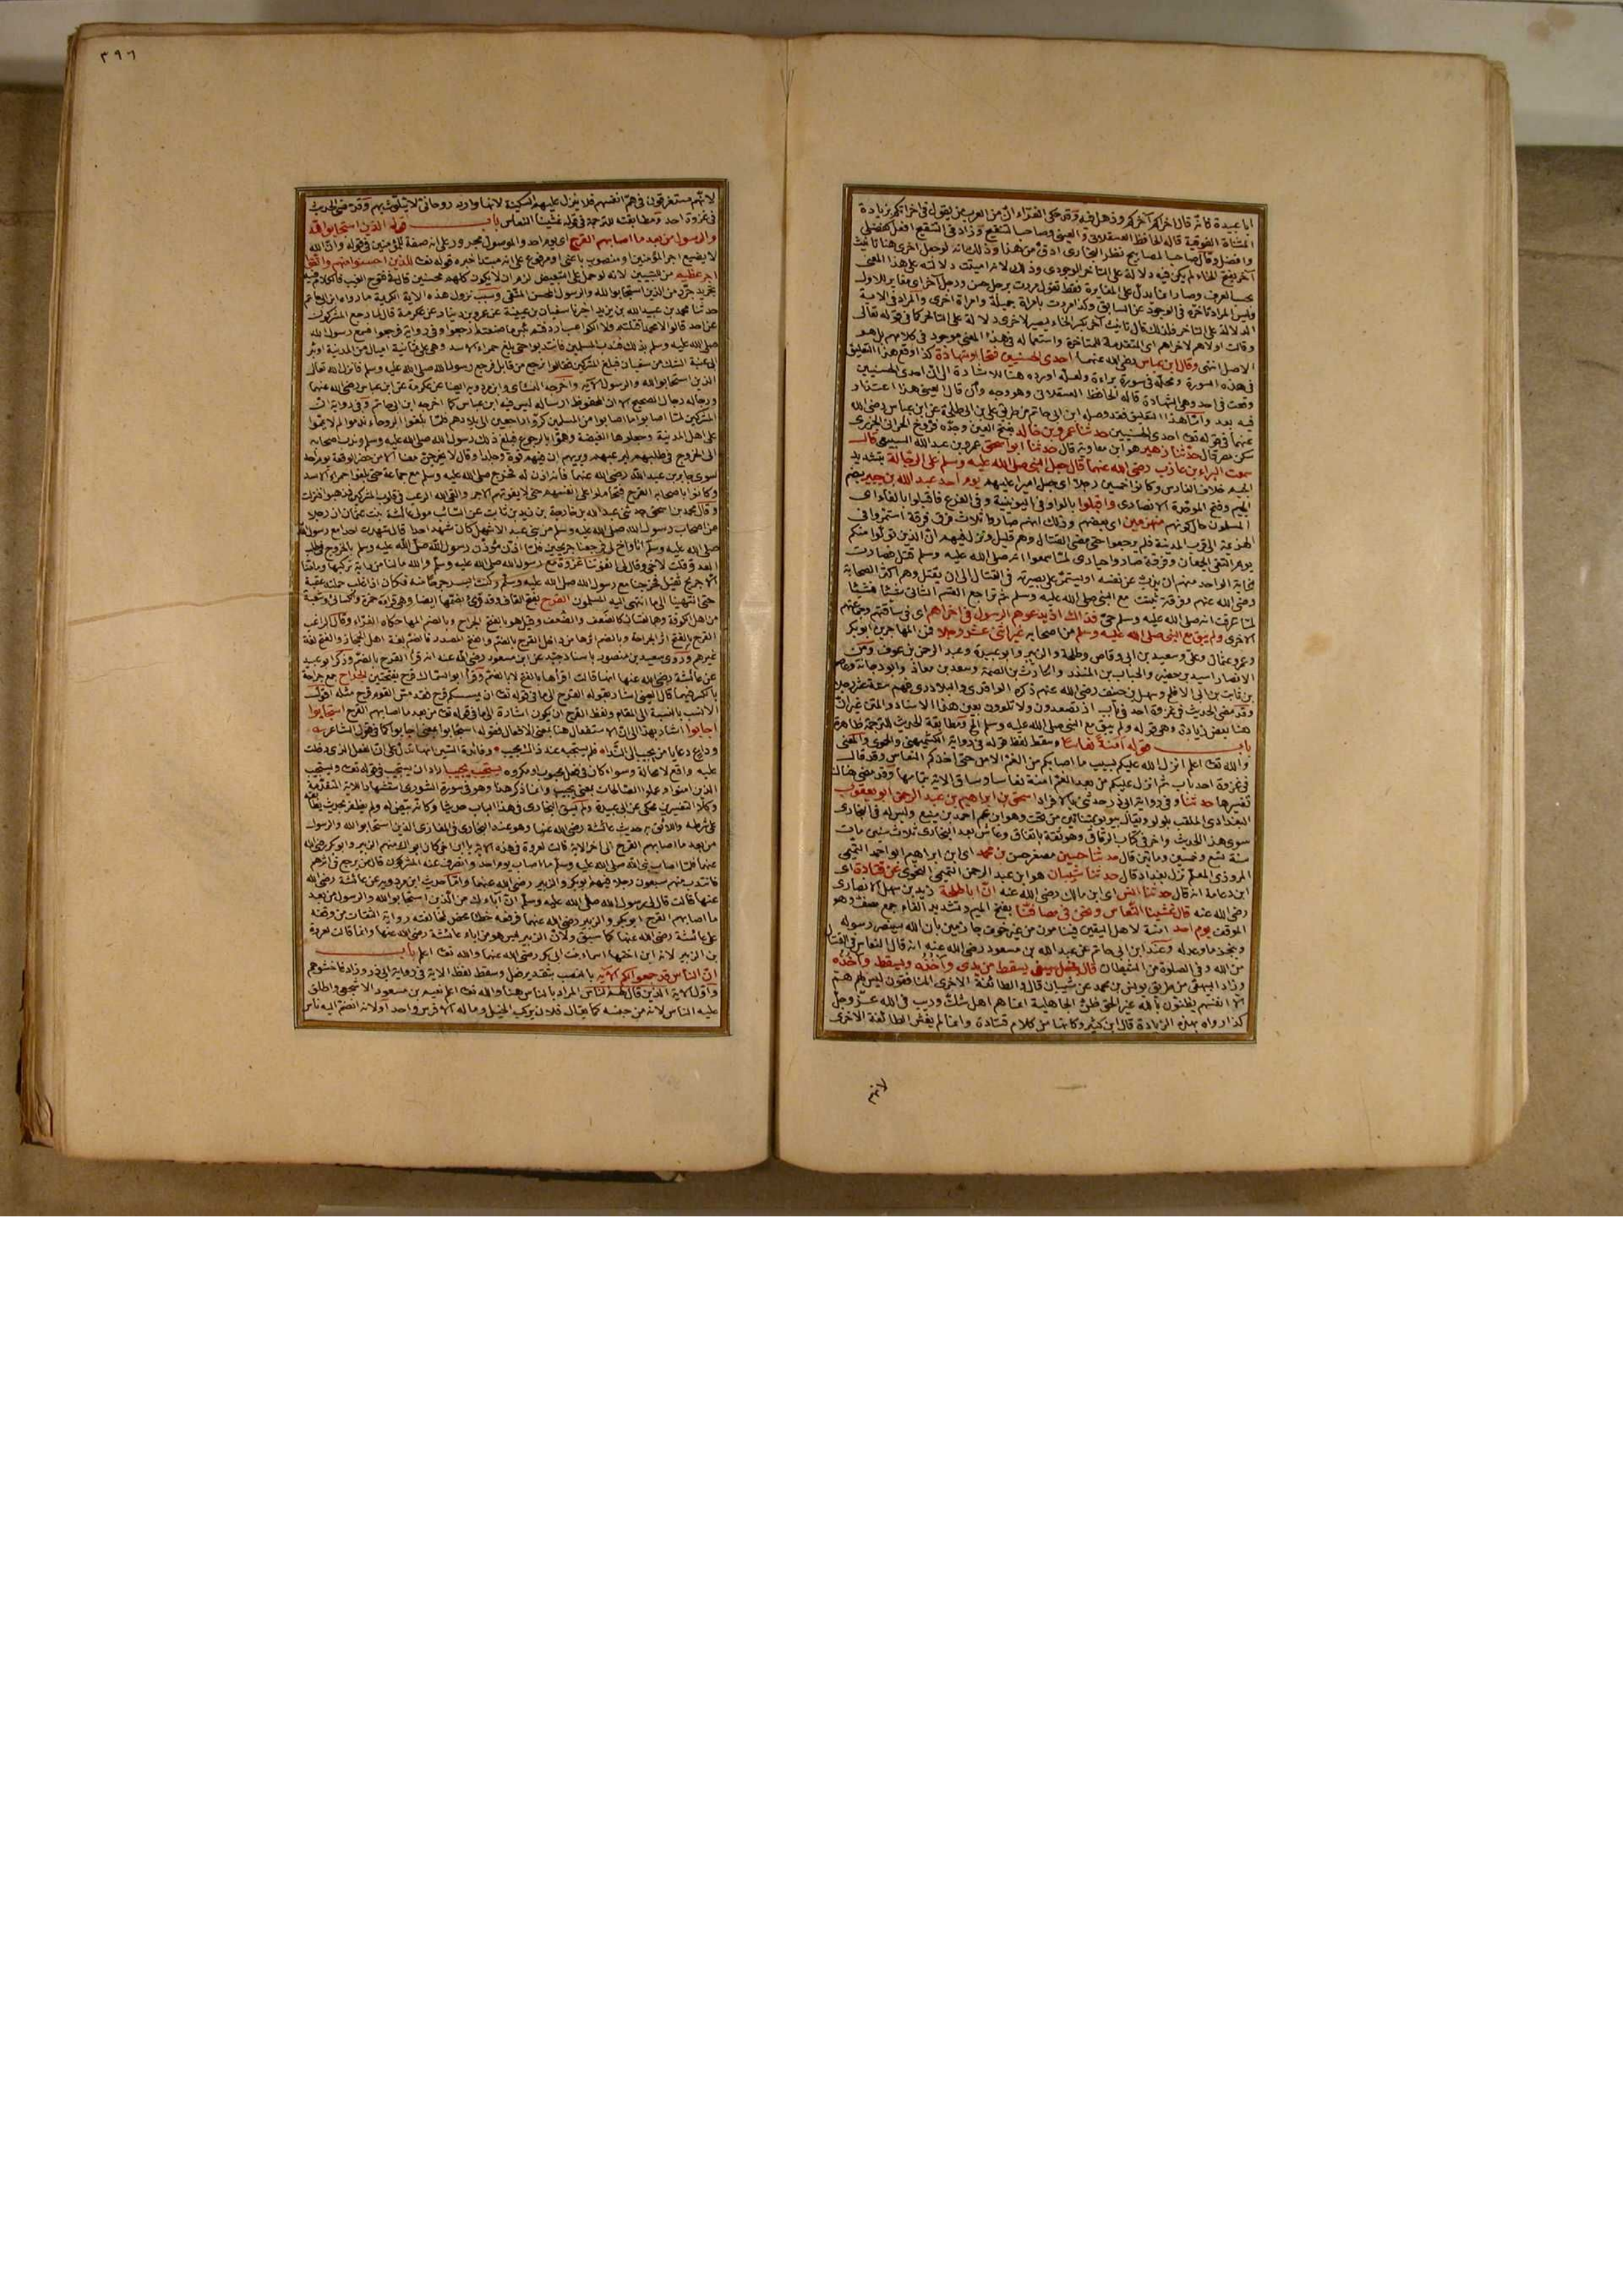 ابا عبيدة فانه قال اخراكم آخركم وذهل فيه وقد حكى الفراء ان من العرب من يقول في اخراتكم بزيادة
المثناة الفوقية قاله الحافظ العسقلاني والعيني وصاحب التنقيح وزاد في التنقيح افعل كفضلى
وافضل وقال صاحب المصابيح نظر البخاري ادق من هذا وذلك لانه لو جعل اخرى هنا تانيث
آخر بفتح الخاء لم يكن فيه دلالة على التاخر الوجودي وذلك لانه اميتت دلالته على هذا المعنى
بحسب العرف وصار انما يدل على المغايرة فقط تقول مررت برجل حسن ورجل آخر اى مغاير للاول
وليس المراد تاخره في الوجود عن السابق وكذا مررت بامراة جميلة وامراة اخرى والمراد في الاية
الدلالة على التاخر فلذلك قال تانيث آخركم بكسر الخاء لتصير اخرى دلالة على التاخر كما في قوله تعالى
وقالت اولاهم لاخراهم اى المتقدمة للمتاخرة واستعماله في هذا المعنى موجود في كلامهم بل هو
الاصل انتهى وقال ابن عباس رضى الله عنهما احدى الحسنيين فتحا او شهادة كذا وقع هذا التعليق
في هذه السورة ومحله في سورة براءة ولعله اورده هنا للاشارة الى ان احدى الحسنيين
وقعت في احد وهى الشهادة قاله الحافظ العسقلاني وهو وجه وان قال العيني هذا اعتذار
فيه بعد واما هذا التعليق فقد وصله ابن ابي حاتم من طريق على بن ابي طلحة عن ابن عباس رضى الله
عنهما في قوله تعا احدى الحسنيين حدثنا عمرو بن خالد بفتح العين وجده فروخ الحراني الجزري
سكن مصر قال حدثنا زهير هو ابن معاوية قال حدثنا ابو اسحق عمرو بن عبد الله السبيعي قال
سمعت البراء بن عازب رضى الله عنهما قال جعل النبي صلى الله عليه وسلم على الرجالة بتشديد
الجيم خلاف الفارس وكانوا خمسين رجلا اى جعل اميرا عليهم يوم احد عبد الله بن جبير بضم
الجيم وفتح الموحدة الانصارى واقبلوا بالواو في اليونينية وفي الفرع فاقبلوا بالفاء اى
المسلمون حال كونهم منهزمين اى بعضهم وذلك انهم صاروا ثلاث فرق فرقة استمروا في
الهزيمة الى قرب المدينة فلم يرجعوا حتى مضى القتال وهم قليل ونزل فيهم ان الذين تولوا منكم
يوم التقى الجمعان وفرقة صاروا حيارى لما سمعوا انه صلى الله عليه وسلم قتل فصارت
غاية الواحد منهم ان يذب عن نفسه او يستمر على بصيرته في القتال الى ان يقتل وهم اكثر الصحابة
رضى الله عنهم وفرقة ثبتت مع النبي صلى الله عليه وسلم ثم تراجع القسم الثاني شيئا فشيئا
لما عرفت انه صلى الله عليه وسلم حي فذاك اذ يدعوهم الرسول في اخراهم اى في ساقتهم وجماعتهم
الاخرى ولم يبق مع النبي صلى الله عليه وسلم من اصحابه غير اثنى عشر رجلا فمن المهاجرين ابو بكر
وعمر وعثمان وعلى وسعيد بن ابي وقاص وطلحة والزبير وابو عبيدة وعبد الرحمن بن عوف ومن
الانصار اسيد بن حضير والحباب بن المنذر والحارث بن الصمة وسعد بن معاذ وابو دجانة وعاصم
بن ثابت بن ابي الافلح وسهل بن حنيف رضى الله عنهم ذكره الواقدى والبلاذرى
وقد مضى الحديث في غزوة احد في باب اذ تصعدون ولا تلوون بعين هذا الاسناد والمتن غير ان
هنا بعض زيادة وهى قوله ولم يبق مع النبي صلى الله عليه وسلم الخ ومطابقة الحديث للترجمة ظاهرة
باب قوله امنة نعاسا وسقط لفظ قوله في رواية الكشميهني والحموى والمعنى
والله تعا اعلم انزل الله عليكم بسبب ما اصابكم من الغم الامن حتى اخذكم النعاس وقد قال
في غزوة احد باب ثم انزل عليكم من بعد الغم امنة نعاسا وساق الاية بتمامها وقد مضى هناك
تفسيرها حدثنا وفي رواية ابي ذر حدثني بالافراد اسحق بن ابراهيم بن عبد الرحمن ابو يعقوب
البغدادى الملقب بلولو ويقال يويو بمثناتين من تحت وهو ابن عم احمد بن منيع وليس له في البخارى
سوى هذا الحديث واخر في كتاب الرقاق وهو ثقة باتفاق وعاش بعد البخارى ثلاث سنين مات
سنة تسع وخمسين ومايتين قال حدثنا حسين مصغر حسن بن محمد اى ابن ابراهيم ابو احمد التميمى
المروذى المعلم نزل بغداد قال حدثنا شيبان هو ابن عبد الرحمن التميمى النحوى عن قتادة اى
ابن دعامة انه قال حدثنا انس اى ابن مالك رضى الله عنه ان ابا طلحة زيد بن سهل الانصارى
رضى الله عنه قال غشينا النعاس ونحن في مصافنا بفتح الميم وتشديد الفاء جمع مصف وهو
الموقف يوم احد امنة لاهل اليقين فينامون من غير خوف جازمين بان الله سينصر رسوله
وينجز ما وعده له وعند ابن ابي حاتم عن عبد الله بن مسعود رضى الله عنه انه قال النعاس في القتال
من الله وفي الصلوة من الشيطان قال فجعل سيفى يسقط من يدى وآخذه ويسقط وآخذه
وزاد البيهقى من طريق يونس بن محمد عن شيبان قال والطائفة الاخرى المنافقون ليس لهم هم
الا انفسهم يظنون بالله غير الحق ظن الجاهلية انما هم اهل شك وريب في الله عز وجل
كذا رواه بهذه الزيادة قال ابن كثير وكانها من كلام قتادة وانما لم يغش الطائفة الاخرى
لانهم
٣٩٦
لانهم مستغرقون في هم انفسهم فلا ينزل عليهم السكينة لانها وارد روحاني لا يتلوث بهم وقد مضى الحديث
في غزوة احد ومطابقته للترجمة في قوله غشينا النعاس باب قوله الذين استجابوا لله
والرسول من بعد ما اصابهم القرح اى يوم احد والموصول مجرور على انه صفة للمؤمنين في قوله وان الله
لا يضيع اجر المؤمنين او منصوب باعنى او مرفوع على انه مبتدا خبره قوله تعا للذين احسنوا منهم واتقوا
اجر عظيم من للتبيين لانه لو حمل على التبعيض لزم ان لا يكون كلهم محسنين قاله في فتوح الغيب فالكلام فيه
تجريد جرد من الذين استجابوا لله والرسول المحسن المتقى وسبب نزول هذه الاية الكريمة ما رواه ابن ابي حاتم
حدثنا محمد بن عبيد الله بن يزيد اخبرنا سفيان بن عيينة عن عمرو بن دينار عن عكرمة قال لما رجع المشركون
عن احد قالوا لا محمدا قتلتم ولا الكواعب اردفتم بئس ما صنعتم ارجعوا وفي رواية فرجعوا فسمع رسول الله
صلى الله عليه وسلم بذلك فندب المسلمين فانتدبوا حتى بلغ حمراء الاسد وهى على ثمانية اميال من المدينة او بئر
ابي عيينة الشك من سفيان فبلغ المشركين فقالوا نرجع من قابل فرجع رسول الله صلى الله عليه وسلم فانزل الله تعالى
الذين استجابوا لله والرسول الاية واخرجه النسائى وابن مردويه ايضا عن عكرمة عن ابن عباس رضى الله عنهما
ورجاله رجال الصحيح الا ان المحفوظ ارساله ليس فيه ابن عباس كما اخرجه ابن ابي حاتم وفي رواية ان
المشركين لما اصابوا ما اصابوا من المسلمين كروا راجعين الى بلادهم فلما بلغوا الروحاء ندموا لم لا تمموا
على اهل المدينة وجعلوها الفيصلة وهموا بالرجوع فبلغ ذلك رسول الله صلى الله عليه وسلم وندب اصحابه
الى الخروج في طلبهم ليرعبهم ويريهم ان فيهم قوة وجلدا وقال لا يخرجن معنا الا من حضر الوقعة يوم احد
سوى جابر بن عبد الله رضى الله عنهما فانه اذن له فخرج صلى الله عليه وسلم مع جماعة حتى بلغوا حمراء الاسد
وكانوا باصحابه القرح فتحاملوا على انفسهم حتى لا يفوتهم الاجر والقى الله الرعب في قلوب المشركين فذهبوا فنزلت
وقال محمد بن اسحق حدثني عبد الله بن خارجة بن زيد بن ثابت عن ابي السائب مولى عائشة بنت عثمان ان رجلا
من اصحاب رسول الله صلى الله عليه وسلم من بني عبد الاشهل كان شهد احدا قال شهدت احدا مع رسول الله
صلى الله عليه وسلم انا واخ لى فرجعنا جريحين فلما اذن مؤذن رسول الله صلى الله عليه وسلم بالخروج في طلب
العدو قلت لاخى وقال لى اتفوتنا غزوة مع رسول الله صلى الله عليه وسلم والله ما لنا من دابة نركبها وما منا
الا جريح ثقيل فخرجنا مع رسول الله صلى الله عليه وسلم وكنت ايسر جرحا منه فكان اذا غلب حملته عقبة
حتى انتهينا الى ما انتهى اليه المسلمون القرح بفتح القاف وقد قرئ بضمها ايضا وهى قراءة حمزة والكسائى وشعبة
من اهل الكوفة وهما لغتان كالضعف والضعف وقيل هو بالفتح الجراح وبالضم المها حكاه الفراء وقال الراغب
القرح بالفتح اثر الجراحة وبالضم اثرها من داخل
غيرهم وروى سعيد بن منصور باسناد جيد عن ابن مسعود رضى الله عنه انه قرأ القرح بالضم وذكر ابو عبيد
عن عائشة رضى الله عنها انها قالت اقرأها بالفتح لا بالضم وقرأ ابو السمال قرح بفتحتين الجراح جمع جراحة
بالكسر فيهما قال العينى اشار بقوله القرح الى ما في قوله تعا ان يمسسكم قرح فقد مس القوم قرح مثله اقول
الانسب بالنسبة الى المقام ولفظ القرح ان يكون اشارة الى ما في قوله تعا من بعد ما اصابهم القرح استجابوا
اجابوا اشار بهذا الى ان الاستفعال هنا بمعنى الافعال فقوله استجابوا بمعنى اجابوا كما في قول الشاعر
وداع دعا يا من يجيب الى الندا فلم يستجبه عند ذاك مجيب وفائدة السين انها تدل على ان الفعل الذى دخلت
عليه واقع لا محالة وسواء كان في فعل محبوب او مكروه يستجيب يجيب اراد ان يستجيب في قوله تعا ويستجيب
الذين امنوا وعملوا الصالحات بمعنى يجيب وانما ذكر هذا وهو في سورة الشورى استشهادا للاية المتقدمة
وكلا التفسيرين محكى عن ابي عبيدة ولم يسق البخارى في هذا الباب حديثا وكانه بيض له ولم يظفر بحديث يطابقه
على شرطه واللائق به حديث عائشة رضى الله عنها وهو عند البخارى في المغازى الذين استجابوا لله والرسول
من بعد ما اصابهم القرح الى اخر الاية قالت لعروة في هذه الاية يا ابن اختى كان ابواك منهم الزبير وابو بكر رضى الله
عنهما فلما اصاب نبي الله صلى الله عليه وسلم ما اصاب يوم احد وانصرف عنه المشركون قال من يرجع في اثرهم
فانتدب منهم سبعون رجلا فيهم ابو بكر والزبير رضى الله عنهما واما حديث ابن مردويه عن عائشة رضى الله
عنها قالت قال لى رسول الله صلى الله عليه وسلم ان آباءك من الذين استجابوا لله والرسول من بعد
ما اصابهم القرح ابو بكر والزبير رضى الله عنهما فرفعه خطأ محض لمخالفته رواية الثقات من وقفه
على عائشة رضى الله عنها كما سبق ولان الزبير ليس هو من اباء عائشة رضى الله عنها وانما قالت لعروة
بن الزبير لانه ابن اختها اسماء بنت ابي بكر رضى الله عنهما والله تعا اعلم باب
ان الناس قد جمعوا لكم الاية بالنصب بتقدير وسقط لفظ الاية في رواية ابي ذر وزاد فاخشوهم
واول الاية الذين قال لهم الناس المراد بالناس هنا والله تعا اعلم نعيم بن مسعود الاشجعى واطلق
عليه الناس لانه من جنسه كما يقال فلان يركب الخيل وماله الا فرس واحد او لانه انضم اليه ناس